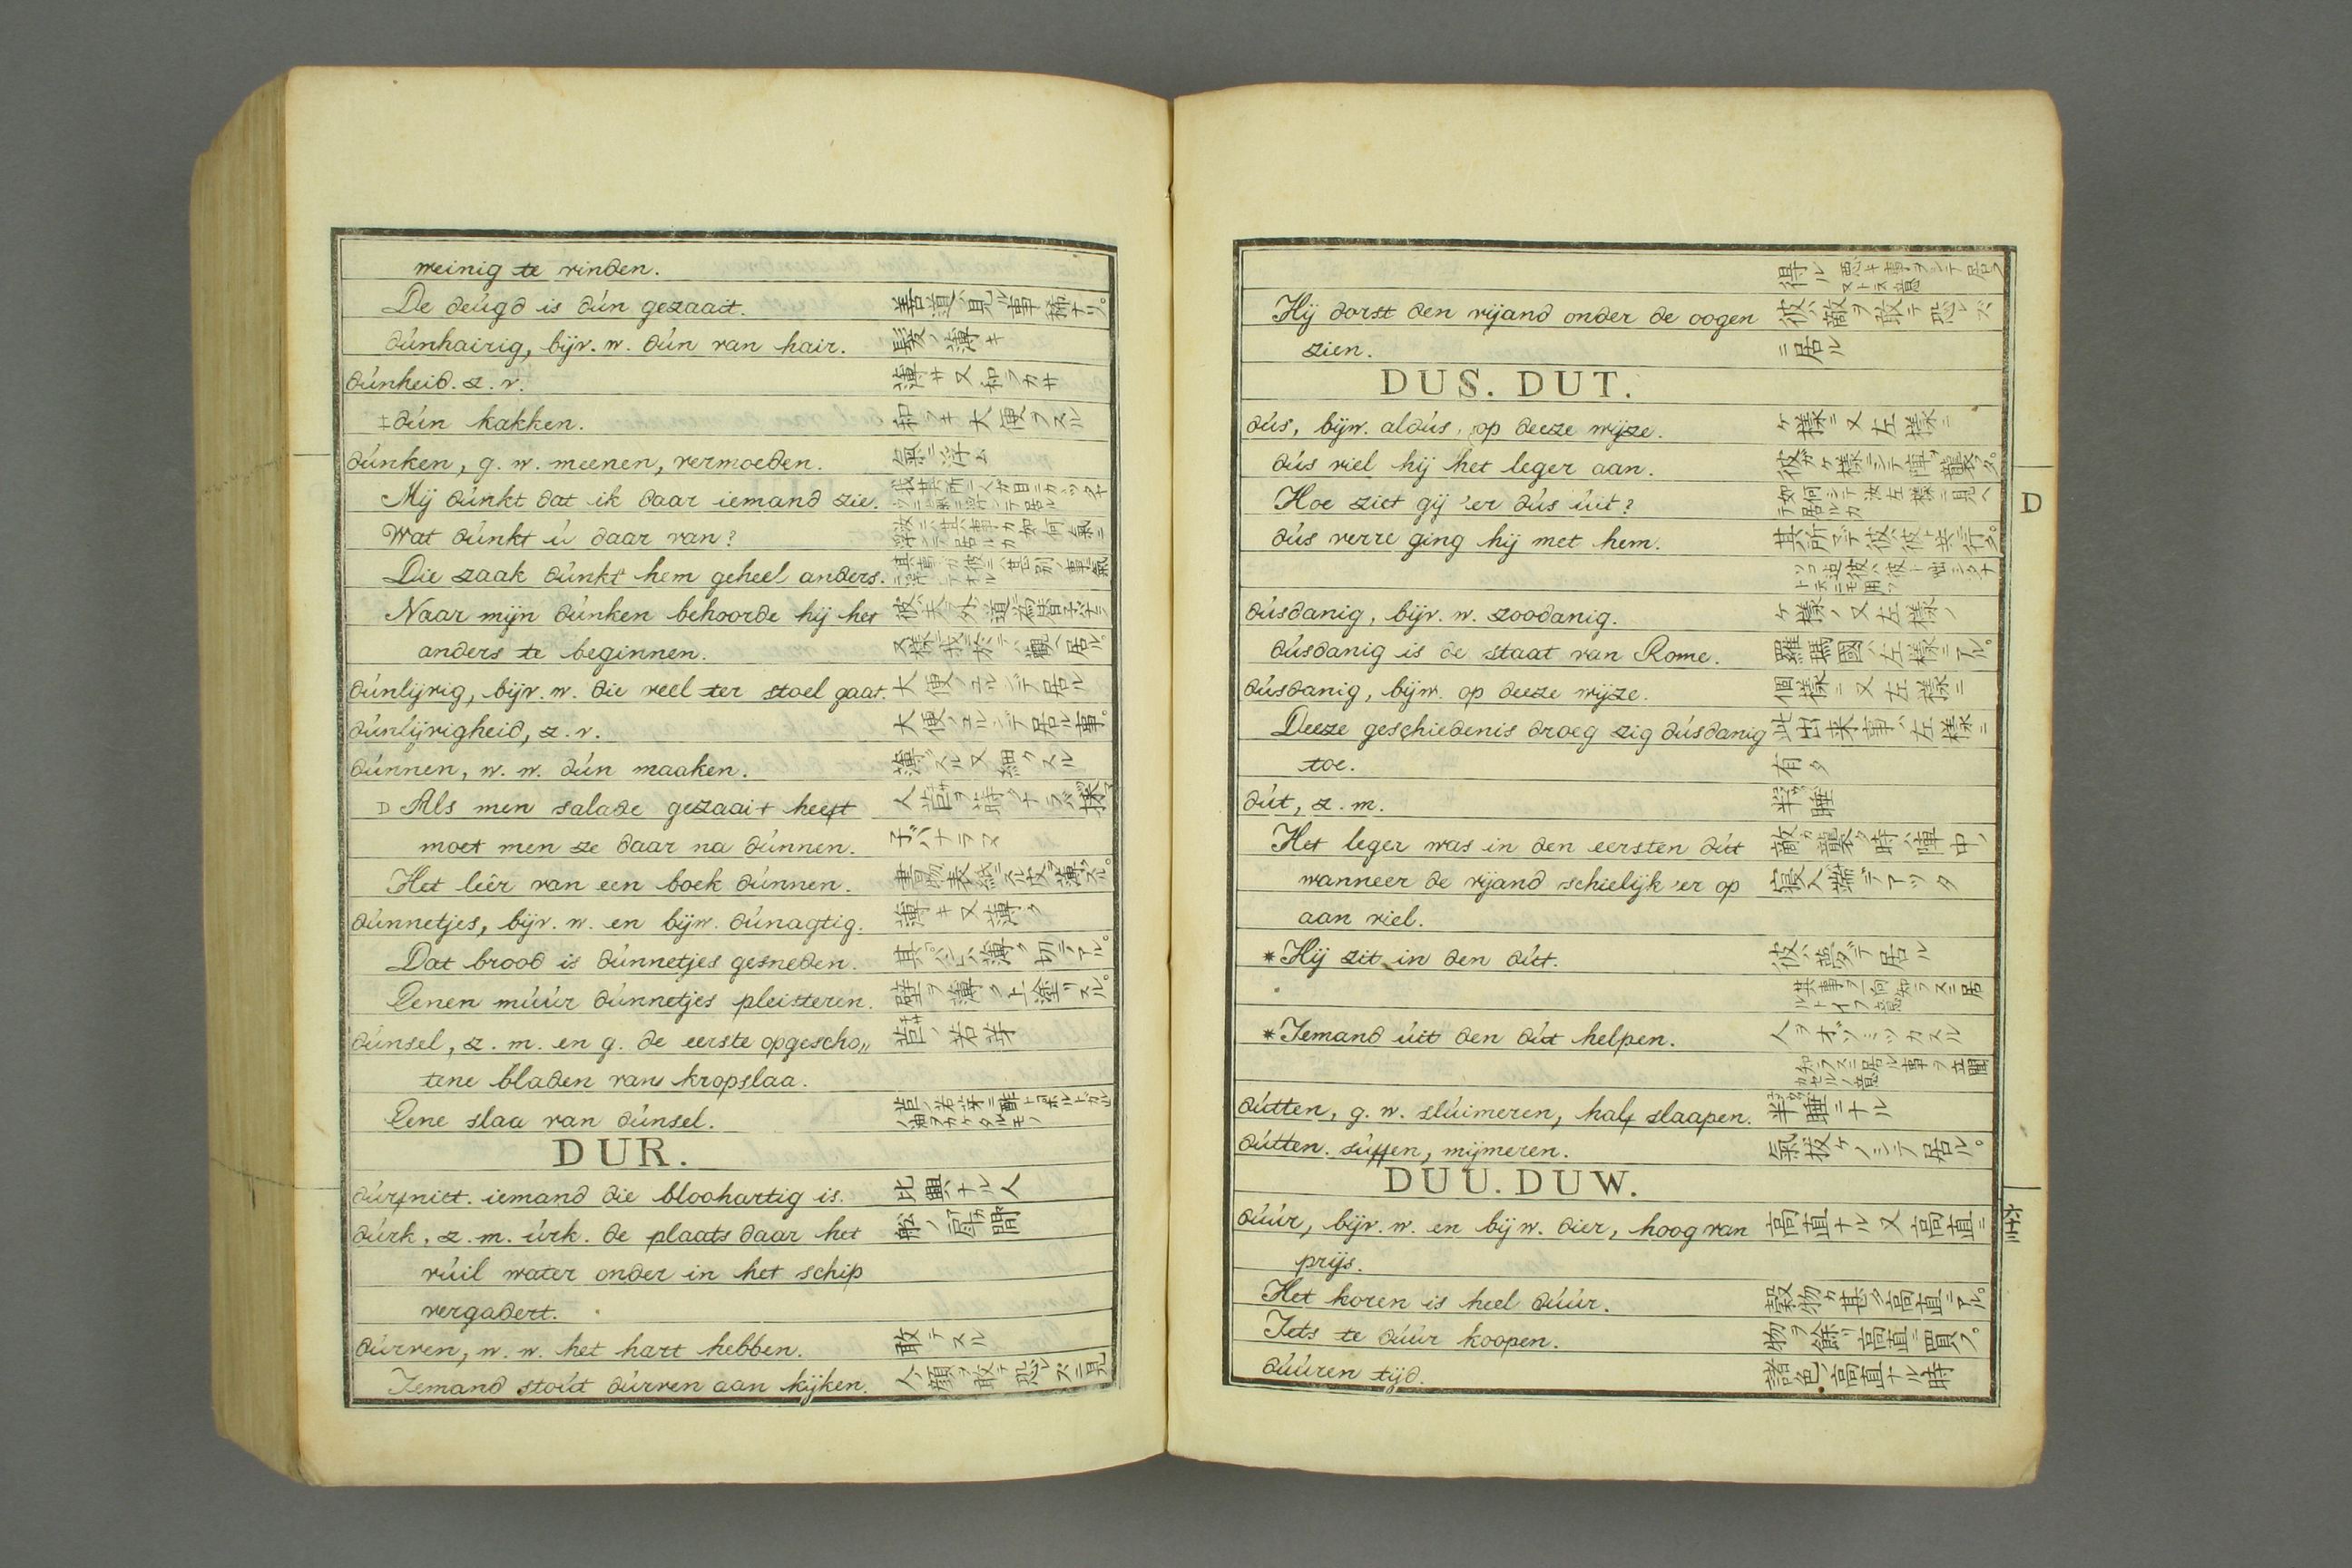 weinig te vinden.
De deúgd is dún gezaait. 善道ハ見ル事稀ナリ。
dúnhairig, bijv. w. dún van hair. 髪ノ薄キ
dúnheid. z. v. 薄サ又和ラカサ
‡dún kakken. 和ラキ大便ヲスル
dúnken, g. w. meenen, vermoeden. 氣ニ浮ム
Mij dúnkt dat ik daar iemand zie.
Wat dúnkt ú daar van?
Die zaak dúnkt hem geheel anders.
Naar mijn dúnken behoorde hij het
anders te beginnen.
dúnlijvig, bijv. w. die veel ter stoel gaat. 大便ノユルンデ居ル
dúnlijvigheid, z. v. 大便ノユルンデ居ル事。
dúnnen, w. w. dún maaken. 薄クスル又細クスル
D Als men salade gezaait heeft
moet men ze daar na dúnnen. 子バナラヌ
Het leêr van een boek dúnnen.
dúnnetjes, bijv. w. en bijw. dúnagtig. 薄キ又薄ク
Dat brood is dúnnetjes gesneden. 其パンハ薄ク切テアル。
Eenen múúr dúnnetjes pleisteren. 壁ヲ薄ク上塗リスル。
dúnsel, z. m. en g. de eerste opgescho„ 苣ノ若芽
tene bladen van kropslaa.
Eene slaa van dúnsel.
DUR.
dúrfniet. iemand die bloohartig is. 比興ナル人
dúrk, z. m. úrk. de plaats daar het
vúil water onder in het schip
vergadert.
dúrven, w. w. het hart hebben. 敢テスル
Iemand stoút dúrven aan kijken. 人ノ顔ヲ敢テ恐レズニ見
得ル
Hij dorst den vijand onder de oogen 彼ハ敵ヲ敢テ恐レズ
zien. ニ居ル
DUS. DUT.
dús, bijw. aldús, op deeze wijze. ケ様ニ又左様ニ
dús viel hij het leger aan. 彼ガケ様ニシテ陣ヲ襲タ。
Hoe ziet gij 'er dús úit? 如何シテ汝左様ニ見ヘテ居ルカ
D
dús verre ging hij met hem. 其所マデ彼ハ彼ト共ニ行タ。
dúsdanig, bijv. w. zoodanig. ケ様ノ又左様ノ
dúsdanig is de staat van Rome. 羅瑪國ハ左様ニアル。
dúsdanig, bijw. op deeze wijze. 個様ニ又左様ニ
Deeze geschiedenis droeg zig dúsdanig 此出来事ハ左様ニ
toe. 有タ
dút, z. m. 半睡
Het leger was in den eersten dút 敵ガ襲タ時ハ陣中ノ
wanneer de vijand schielijk 'er op 寝入端デアツタ
aan viel.
*Hij zit in den dút. 彼ハ夢デ居ル
其事ヲ一向知ラズニ居ルトイフ意
*Iemand úit den dút helpen. 人ヲオドシミツカスル
dútten, g. w. slúimeren, half slaapen. 半睡ニナル
dútten. súffen, mijmeren. 氣抜ケノシテ居ル。
DUU. DUW.
dúúr, bijv. w. en bijw. dier, hoog van 高直ナル又高直ニ
prijs.
Het koren is heel dúúr. 穀物ガ甚タ高直ニアル。
Iets te dúúr koopen. 物ヲ餘リ高直ニ買フ。
dúúren tijd. 諸色ノ高直ナル時